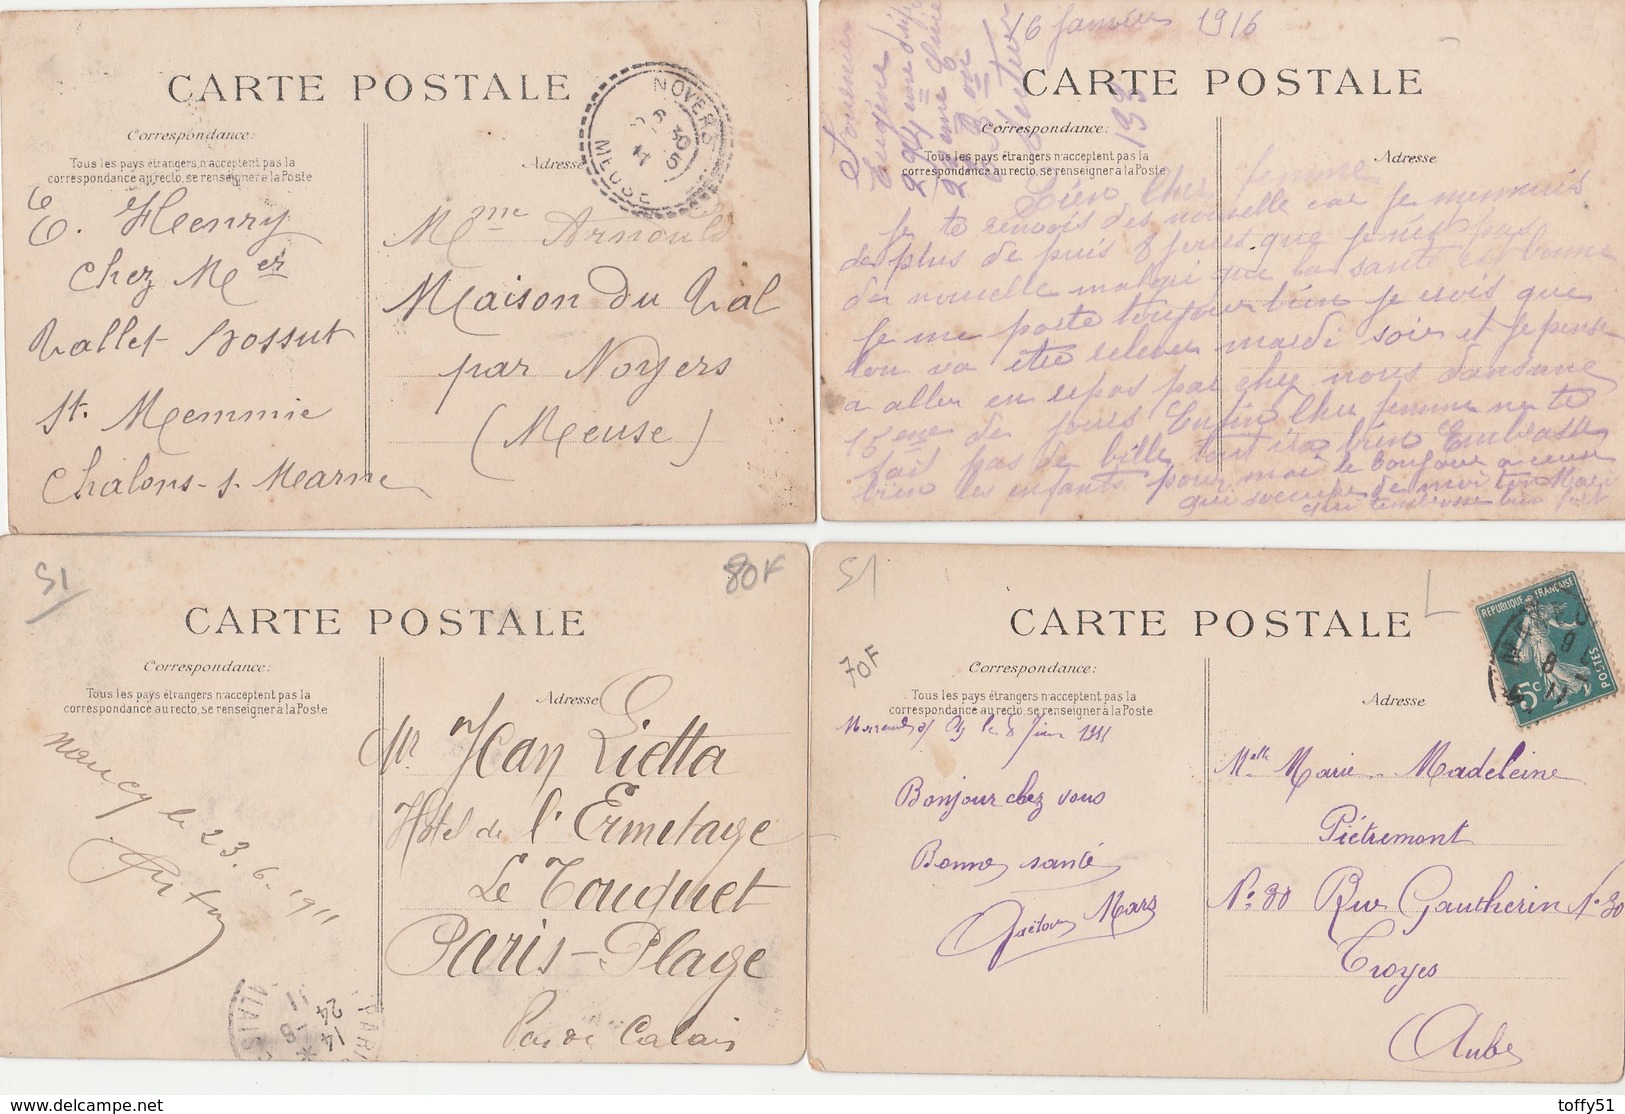 CARTE POSTALE
Correspondance:
Tous les pays étrangers n'acceptent pas la
correspondance au recto, se renseigner à la Poste
Adresse
NOYERS
MEUSE
E. Henry
chez Mer
Vallet-Bossut
St. Memmie
Chalons-s-Marne
Mme Arnould
Maison du Val
par Noyers
(Meuse)
16 Janvier 1916
CARTE POSTALE
Correspondance:
Tous les pays étrangers n'acceptent pas la
correspondance au recto, se renseigner à la Poste
Adresse
Souvenir
Eugène
Secteur
139
Bien cher femme
Je te renvois des nouvelle car je m'ennuis
de plus de puis 8 jours que je n'es pas
de nouvelle malgré que la santé est bonne
je me porte toujours bien je crois que
lon va etre relever mardi soir et je pense
a aller en repos par chez nous dans une
15ene de jours Enfin cher femme ne te
fait pas de bille tout ira bien Embrasse
bien les enfants pour moi le bonjour a ceux
qui soccupe de moi ton Mari
qui tembrasse bien fort
51
80F
CARTE POSTALE
Correspondance:
Tous les pays étrangers n'acceptent pas la
correspondance au recto, se renseigner à la Poste
Adresse
Nancy le 23.6.1911
Mr Jean Lietta
Hôtel de l'Ermitage
Le Touquet
Paris-Plage
Pas de Calais
51
70F
CARTE POSTALE
Correspondance:
Tous les pays étrangers n'acceptent pas la
correspondance au recto, se renseigner à la Poste
Adresse
REPUBLIQUE FRANÇAISE
POSTES
5c
le 8 Juin 1911
Bonjour chez vous
Bonne santé
Gaëtan Mars
Melle Marie-Madeleine
Piétremont
No 30 Rue Gautherin No 30
Troyes
Aube
toffy51